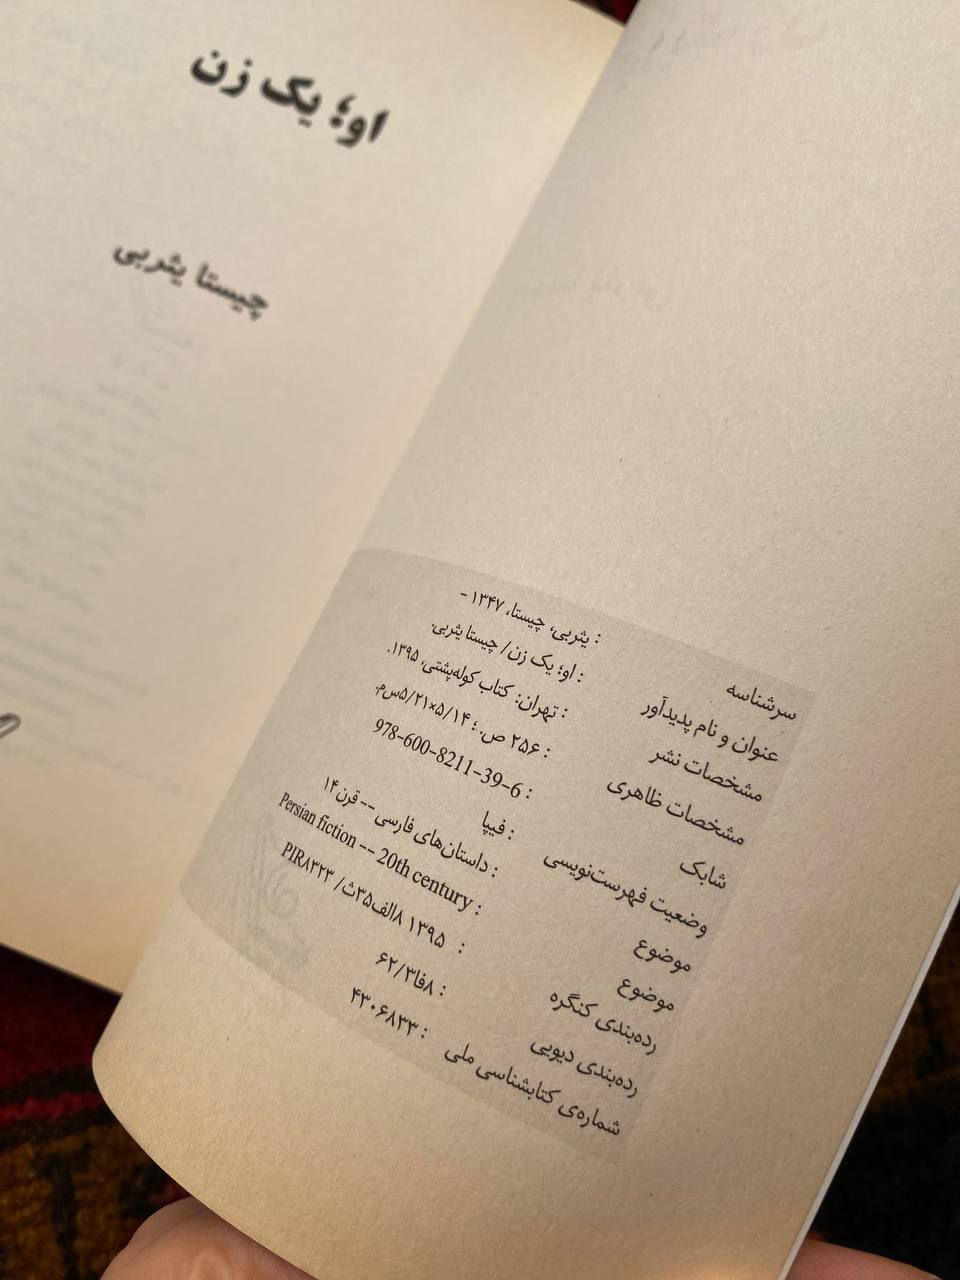 او؛ یک زن
چیستا یثربی
سرشناسه : یثربی، چیستا، ۱۳۴۷ -
عنوان و نام پدیدآور : او؛ یک زن/ چیستا یثربی.
مشخصات نشر : تهران: کتاب کوله‌پشتی، ۱۳۹۵.
مشخصات ظاهری : ۲۵۶ ص.؛ ۵/۲۱×۵/۱۴س‌م.
شابک : 978-600-8211-39-6
وضعیت فهرست‌نویسی : فیپا
موضوع : داستان‌های فارسی -- قرن۱۴
موضوع : Persian fiction -- 20th century
رده‌بندی کنگره : ۱۳۹۵ ۸الف۳۵ث/ PIR۸۳۲۳
رده‌بندی دیویی : ۸فا۳/۶۲
شماره‌ی کتابشناسی ملی : ۴۳۰۶۸۳۳